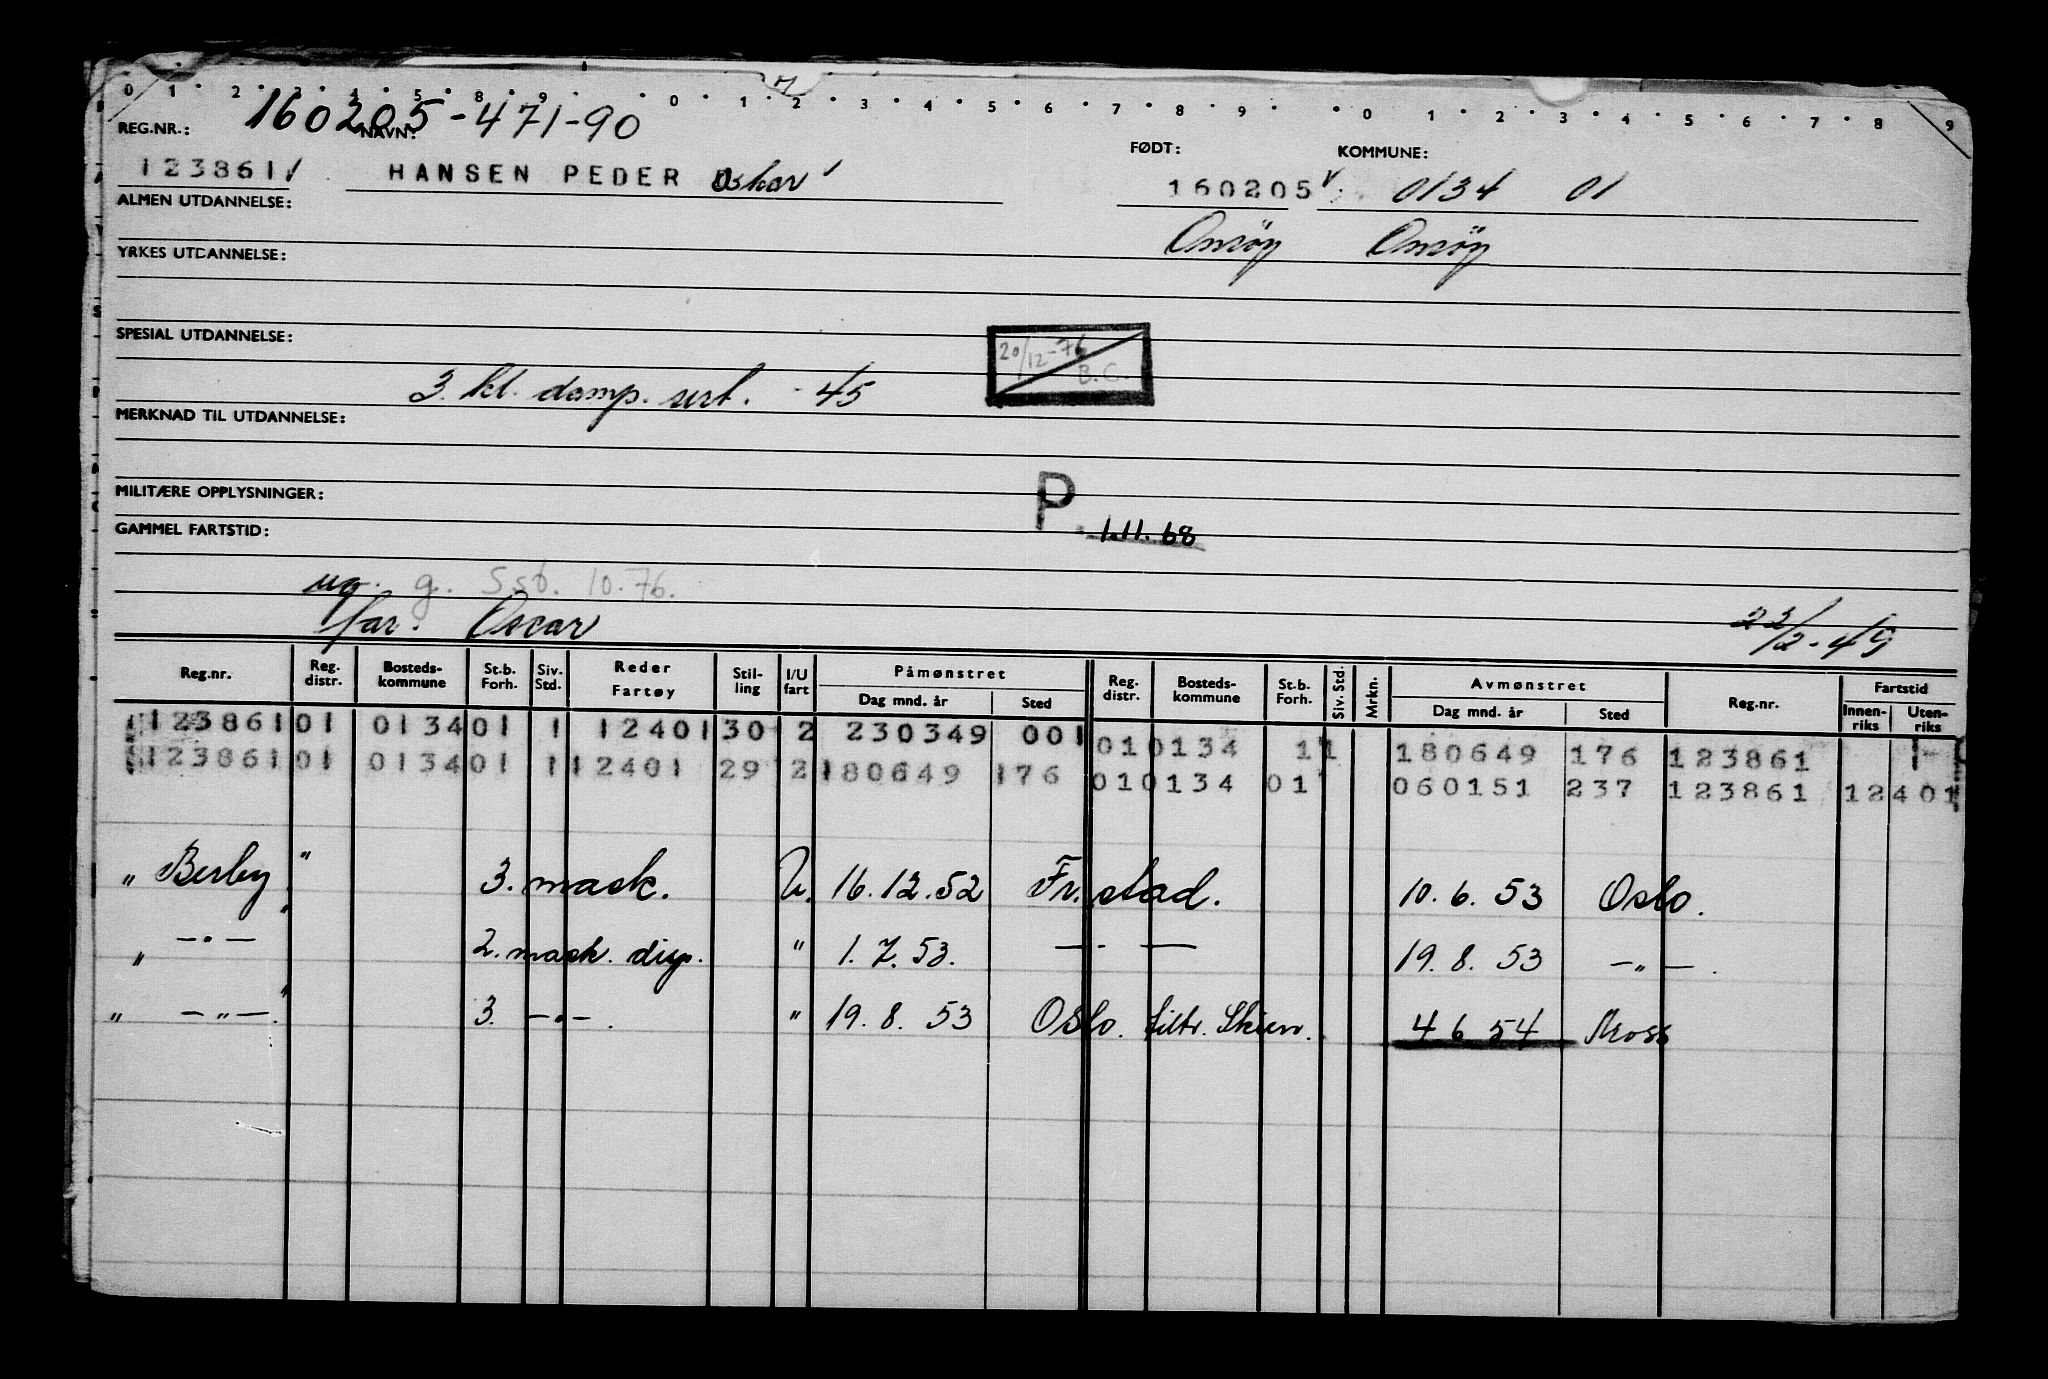 0 1 2 3 4 5 8 9 0 1 2 3 4 5 6 7 8 9 0 1 2 3 4 5 6 7 8 9
160205-471-90
REG.NR.: NAVN: FØDT: KOMMUNE:
123861 HANSEN PEDER Oskar 160205 0134 01
ALMEN UTDANNELSE: Onsöy Onsöy
YRKES UTDANNELSE:
SPESIAL UTDANNELSE: 20/12-76 B.C.
3. kl. damp. sert. -45
MERKNAD TIL UTDANNELSE:
MILITÆRE OPPLYSNINGER: P. 1.11.68
GAMMEL FARTSTID:
ug. g. Ssb. 10.76.
far. Oscar 22/2-49
Reg.nr. Reg. distr. Bosteds-kommune St.b. Forh. Siv. Std. Reder Fartøy Stil-ling I/U fart Påmønstret Dag mnd. år Sted Reg. distr. Bosteds-kommune St.b. Forh. Siv. Std. Mrkn. Avmønstret Dag mnd. år Sted Reg.nr. Fartstid Innen-riks Uten-riks
123861 01 0134 01 1 12401 30 2 230349 001 01 0134 1 1 180649 176 123861 1
123861 01 0134 01 1 12401 29 2 180649 176 01 0134 01 060151 237 123861 12401
" Berby " 3. mask. U. 16.12.52 Fr.stad. 10.6.53 Oslo.
" —·— " 2. mask. disp. " 1.7.53. —·— 19.8.53 —"—.
" —"—. " 3. —·—. " 19.8.53 Oslo. tiltr. Skien. 4 6 54 Moss